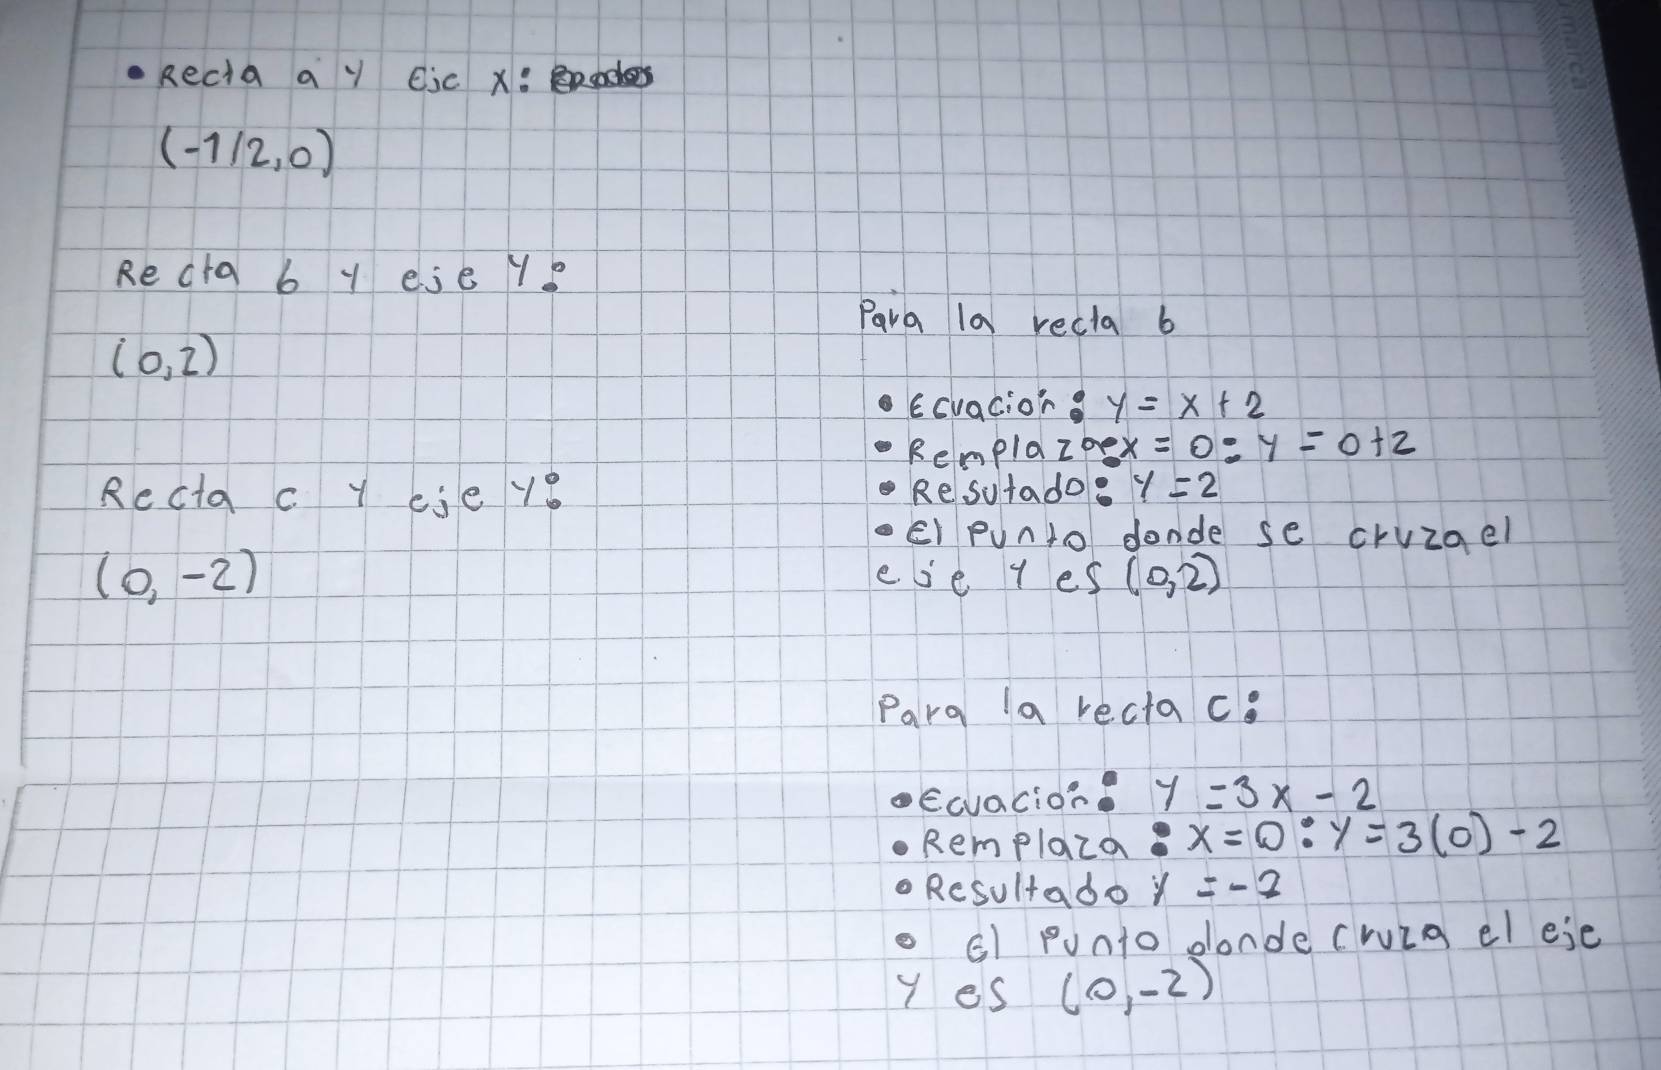 • Recta a y Eje x:
(-1/2,0)
Recta b y eje y:
(0,2)
Recta c y eje y:
(0,-2)
Para la recta b
• Ecuación: y = x + 2
• Remplaza: x = 0: y = 0+2
• Resutado: y = 2
• El punto donde se cruza el
eje y es (0,2)
Para la recta c:
• Ecuación: y = 3x - 2
• Remplaza: x = 0: y = 3(0) - 2
• Resultado y = -2
• El punto donde cruza el eje
y es (0,-2)